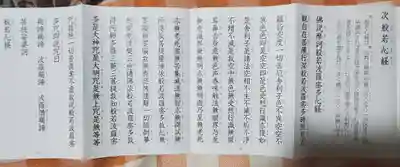 次般若心経
佛説摩訶般若波羅蜜多心経
観自在菩薩行深般若波羅蜜多時照見五
蘊皆空度一切苦厄舎利子色不異空空不
異色色即是空空即是色受想行識亦復如
是舎利子是諸法空相不生不滅不垢不浄
不増不減是故空中無色無受想行識無眼
耳鼻舌身意無色声香味触法無眼界乃至
無意識界無無明亦無無明尽乃至無老死
亦無老死尽無苦集滅道無智亦無得以無
所得故菩提薩埵依般若波羅蜜多故心無
罣礙無罣礙故無有恐怖遠離一切顛倒夢
想究竟涅槃三世諸佛依般若波羅蜜多故
得阿耨多羅三藐三菩提故知般若波羅蜜
多是大神咒是大明咒是無上咒是無等等
咒能除一切苦真実不虚故説般若波羅蜜
多咒即説咒曰
羯諦羯諦 波羅羯諦 波羅僧羯諦
菩提娑婆訶
般若心経